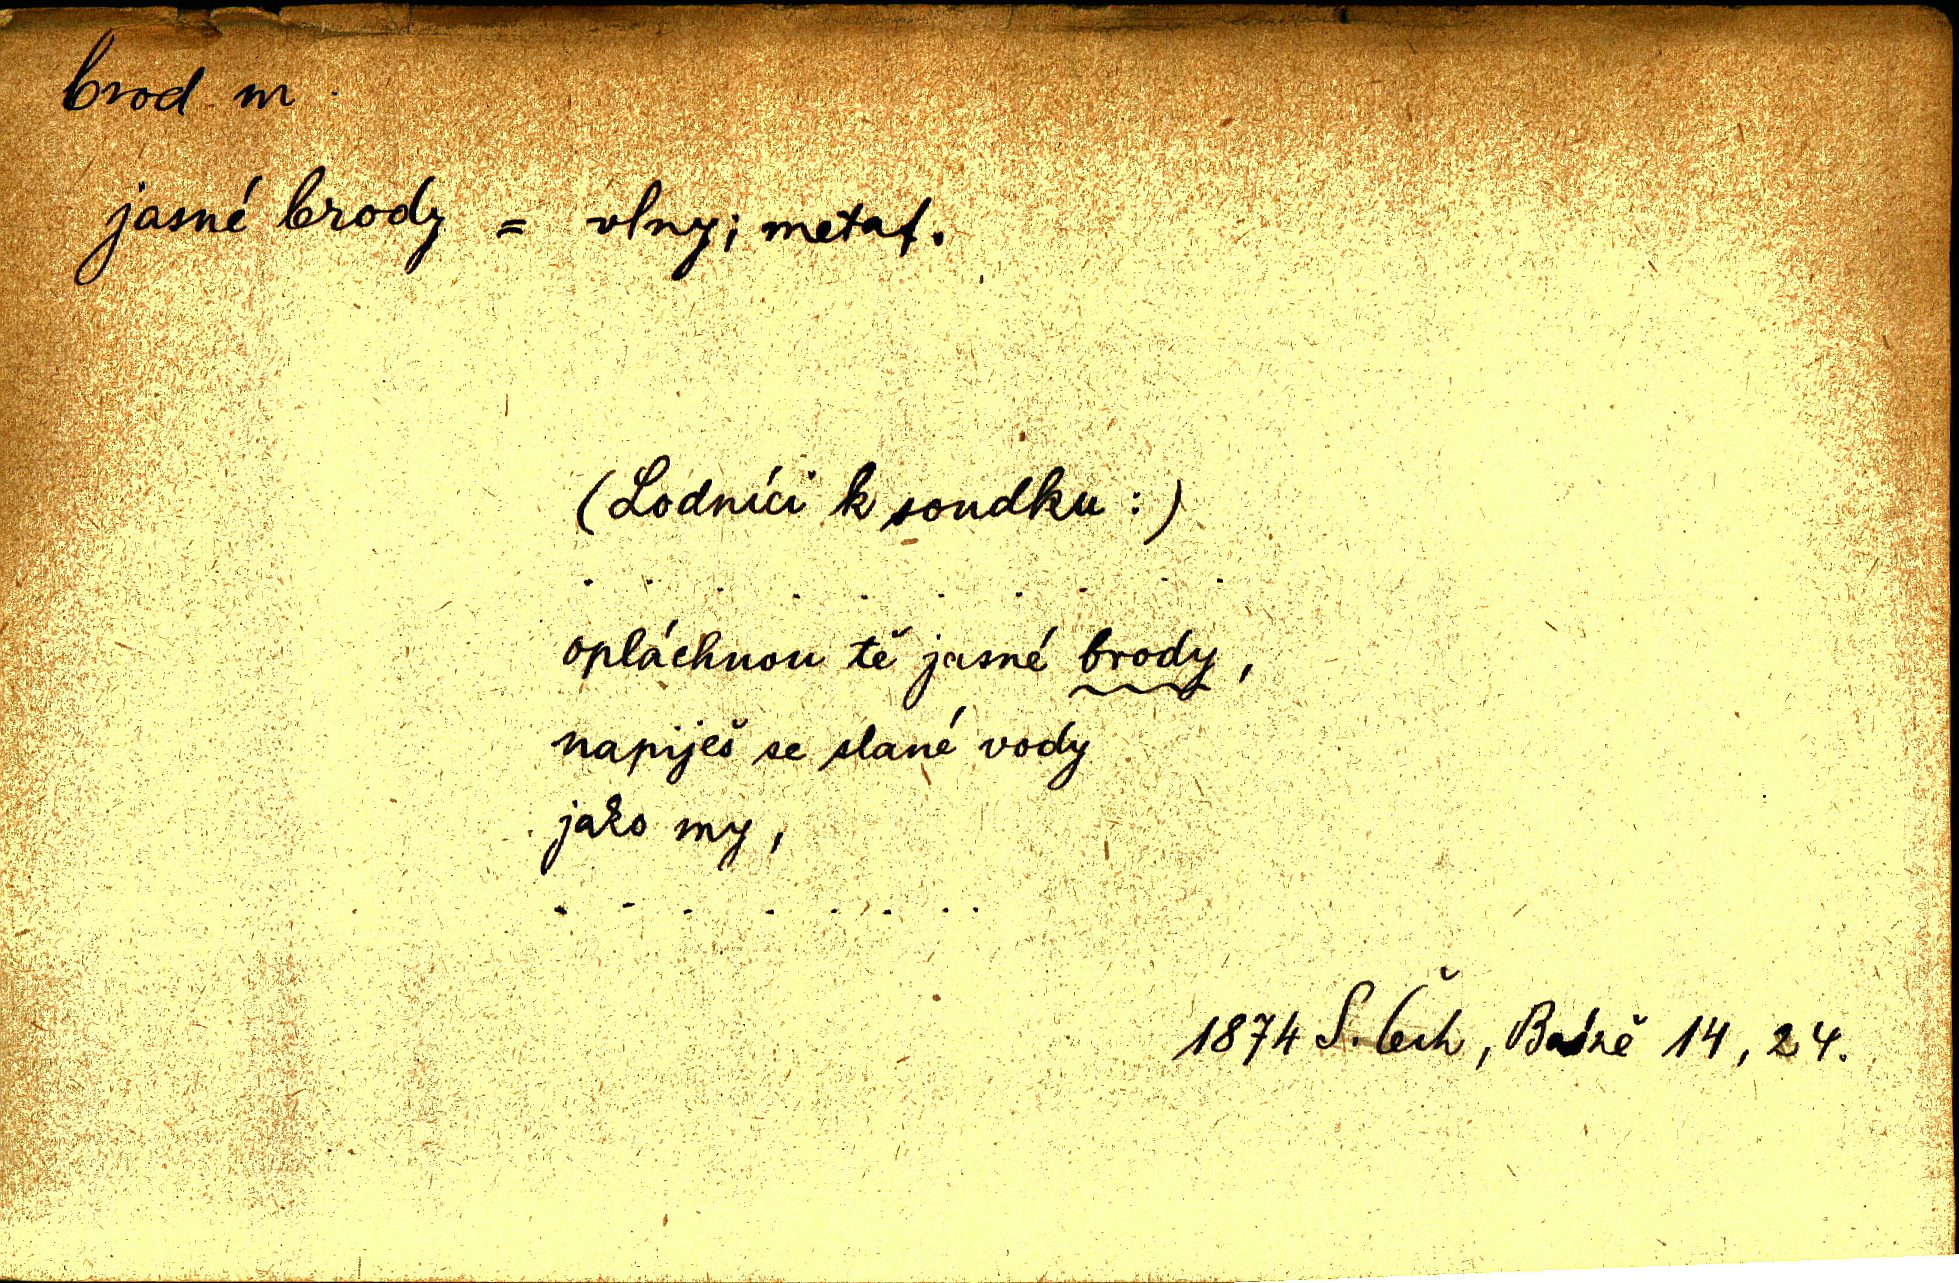 brod m.
jasné brody = vlny; metaf.
(Lodníci k soudku:)
. . . . . . . . . .
opláchnou tě jasné brody,
napiješ se slané vody
jako my,
. . . . . . . .
1874 S. Čech, Básně 14, 24.